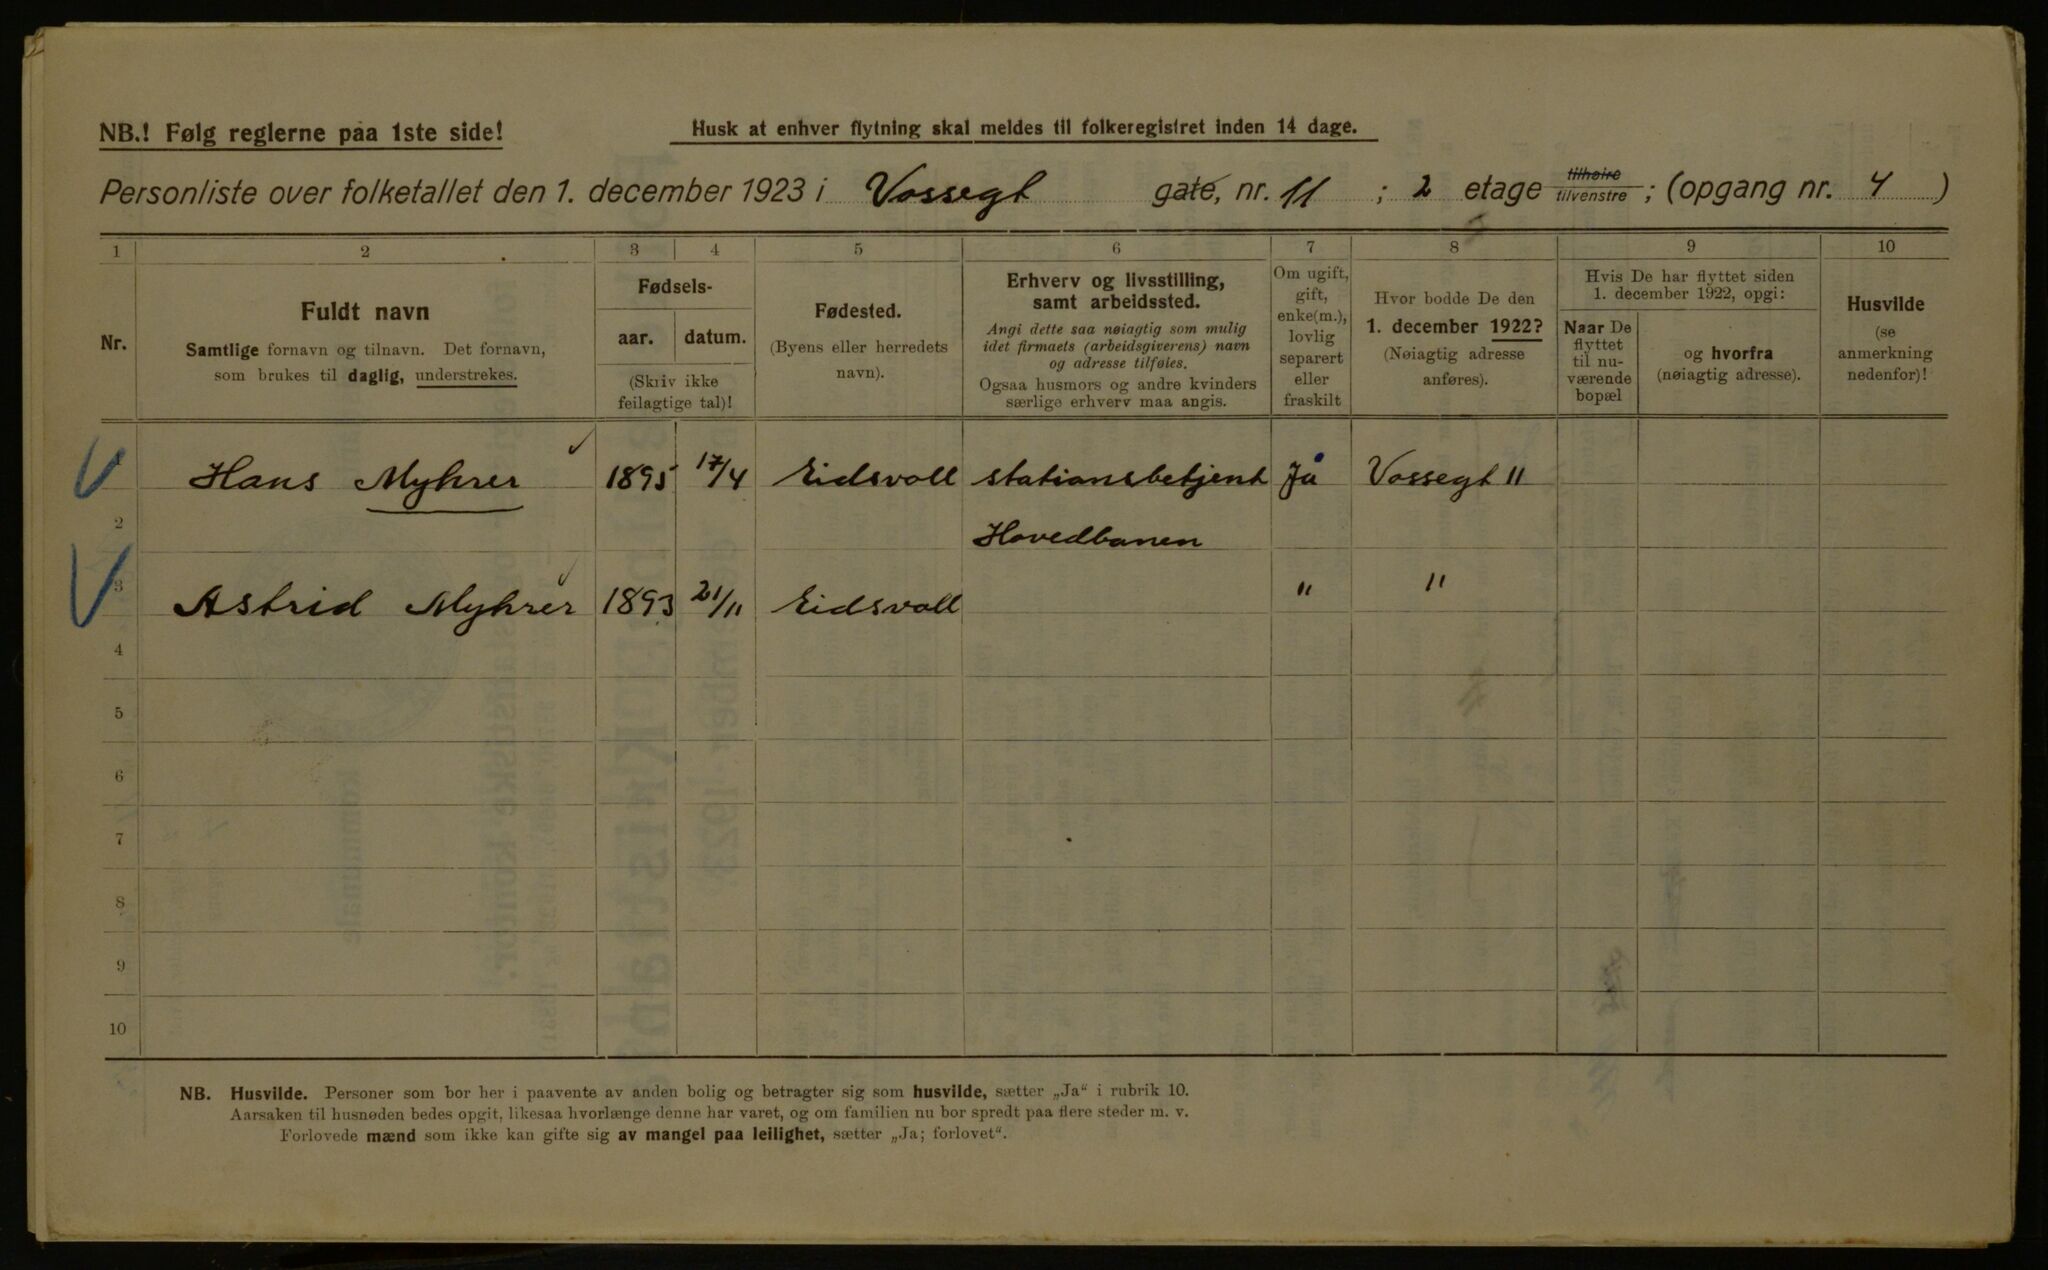 NB.! Følg reglerne paa 1ste side!
Husk at enhver flytning skal meldes til folkeregistret inden 14 dage.
Personliste over folketallet den 1. december 1923 i Vossegt gate, nr. 11 ; 2 etage tilhøire tilvenstre ; (opgang nr. 4 )
1 2 3 4 5 6 7 8 9 10
Nr.
Fuldt navn
Samtlige fornavn og tilnavn. Det fornavn,
som brukes til daglig, understrekes.
Fødsels-
aar. datum.
(Skriv ikke
feilagtige tal)!
Fødested.
(Byens eller herredets
navn).
Erhverv og livsstilling,
samt arbeidssted.
Angi dette saa nøiagtig som mulig
idet firmaets (arbeidsgiverens) navn
og adresse tilføies.
Ogsaa husmors og andre kvinders
særlige erhverv maa angis.
Om ugift,
gift,
enke(m.),
lovlig
separert
eller
fraskilt
Hvor bodde De den
1. december 1922?
(Nøiagtig adresse
anføres).
Hvis De har flyttet siden
1. december 1922, opgi:
Naar De
flyttet
til nu-
værende
bopæl
og hvorfra
(nøiagtig adresse).
Husvilde
(se
anmerkning
nedenfor)!
Hans Myhrer 1895 17/4 Eidsvoll stationsbetjent Ja Vossegt 11
2 Hovedbanen
3 Astrid Myhrer 1893 21/11 Eidsvoll " "
4
5
6
7
8
9
10
NB. Husvilde. Personer som bor her i paavente av anden bolig og betragter sig som husvilde, sætter „Ja“ i rubrik 10.
Aarsaken til husnøden bedes opgit, likesaa hvorlænge denne har varet, og om familien nu bor spredt paa flere steder m. v.
Forlovede mænd som ikke kan gifte sig av mangel paa leilighet, sætter „Ja; forlovet“.